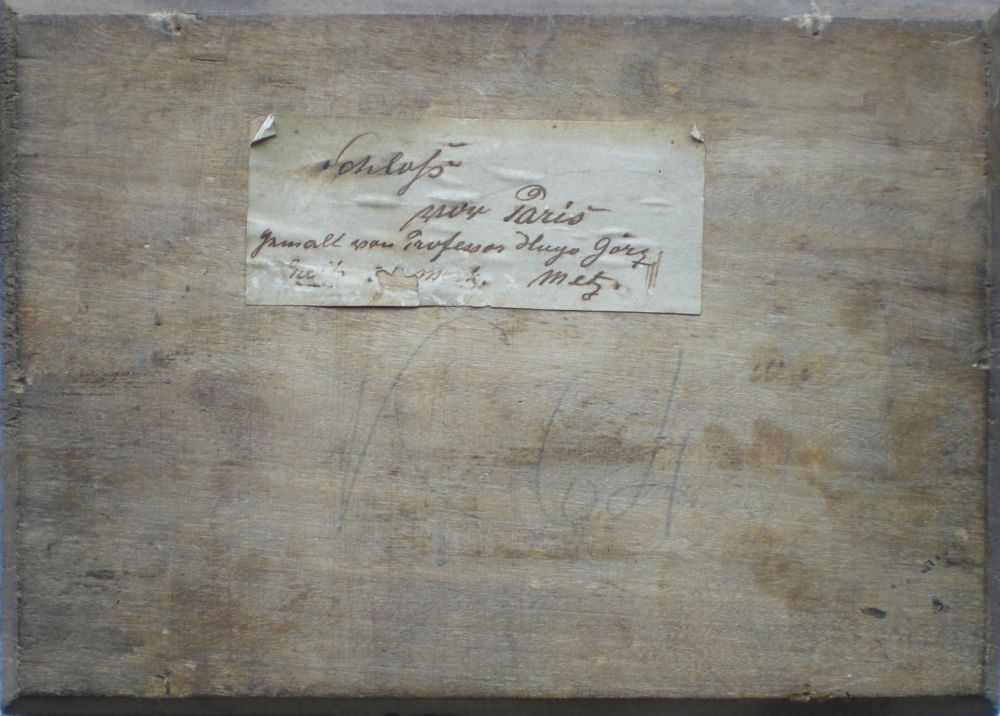 Schloß
vor Paris
gemalt von Professor Hugo Görz
Metz.
64